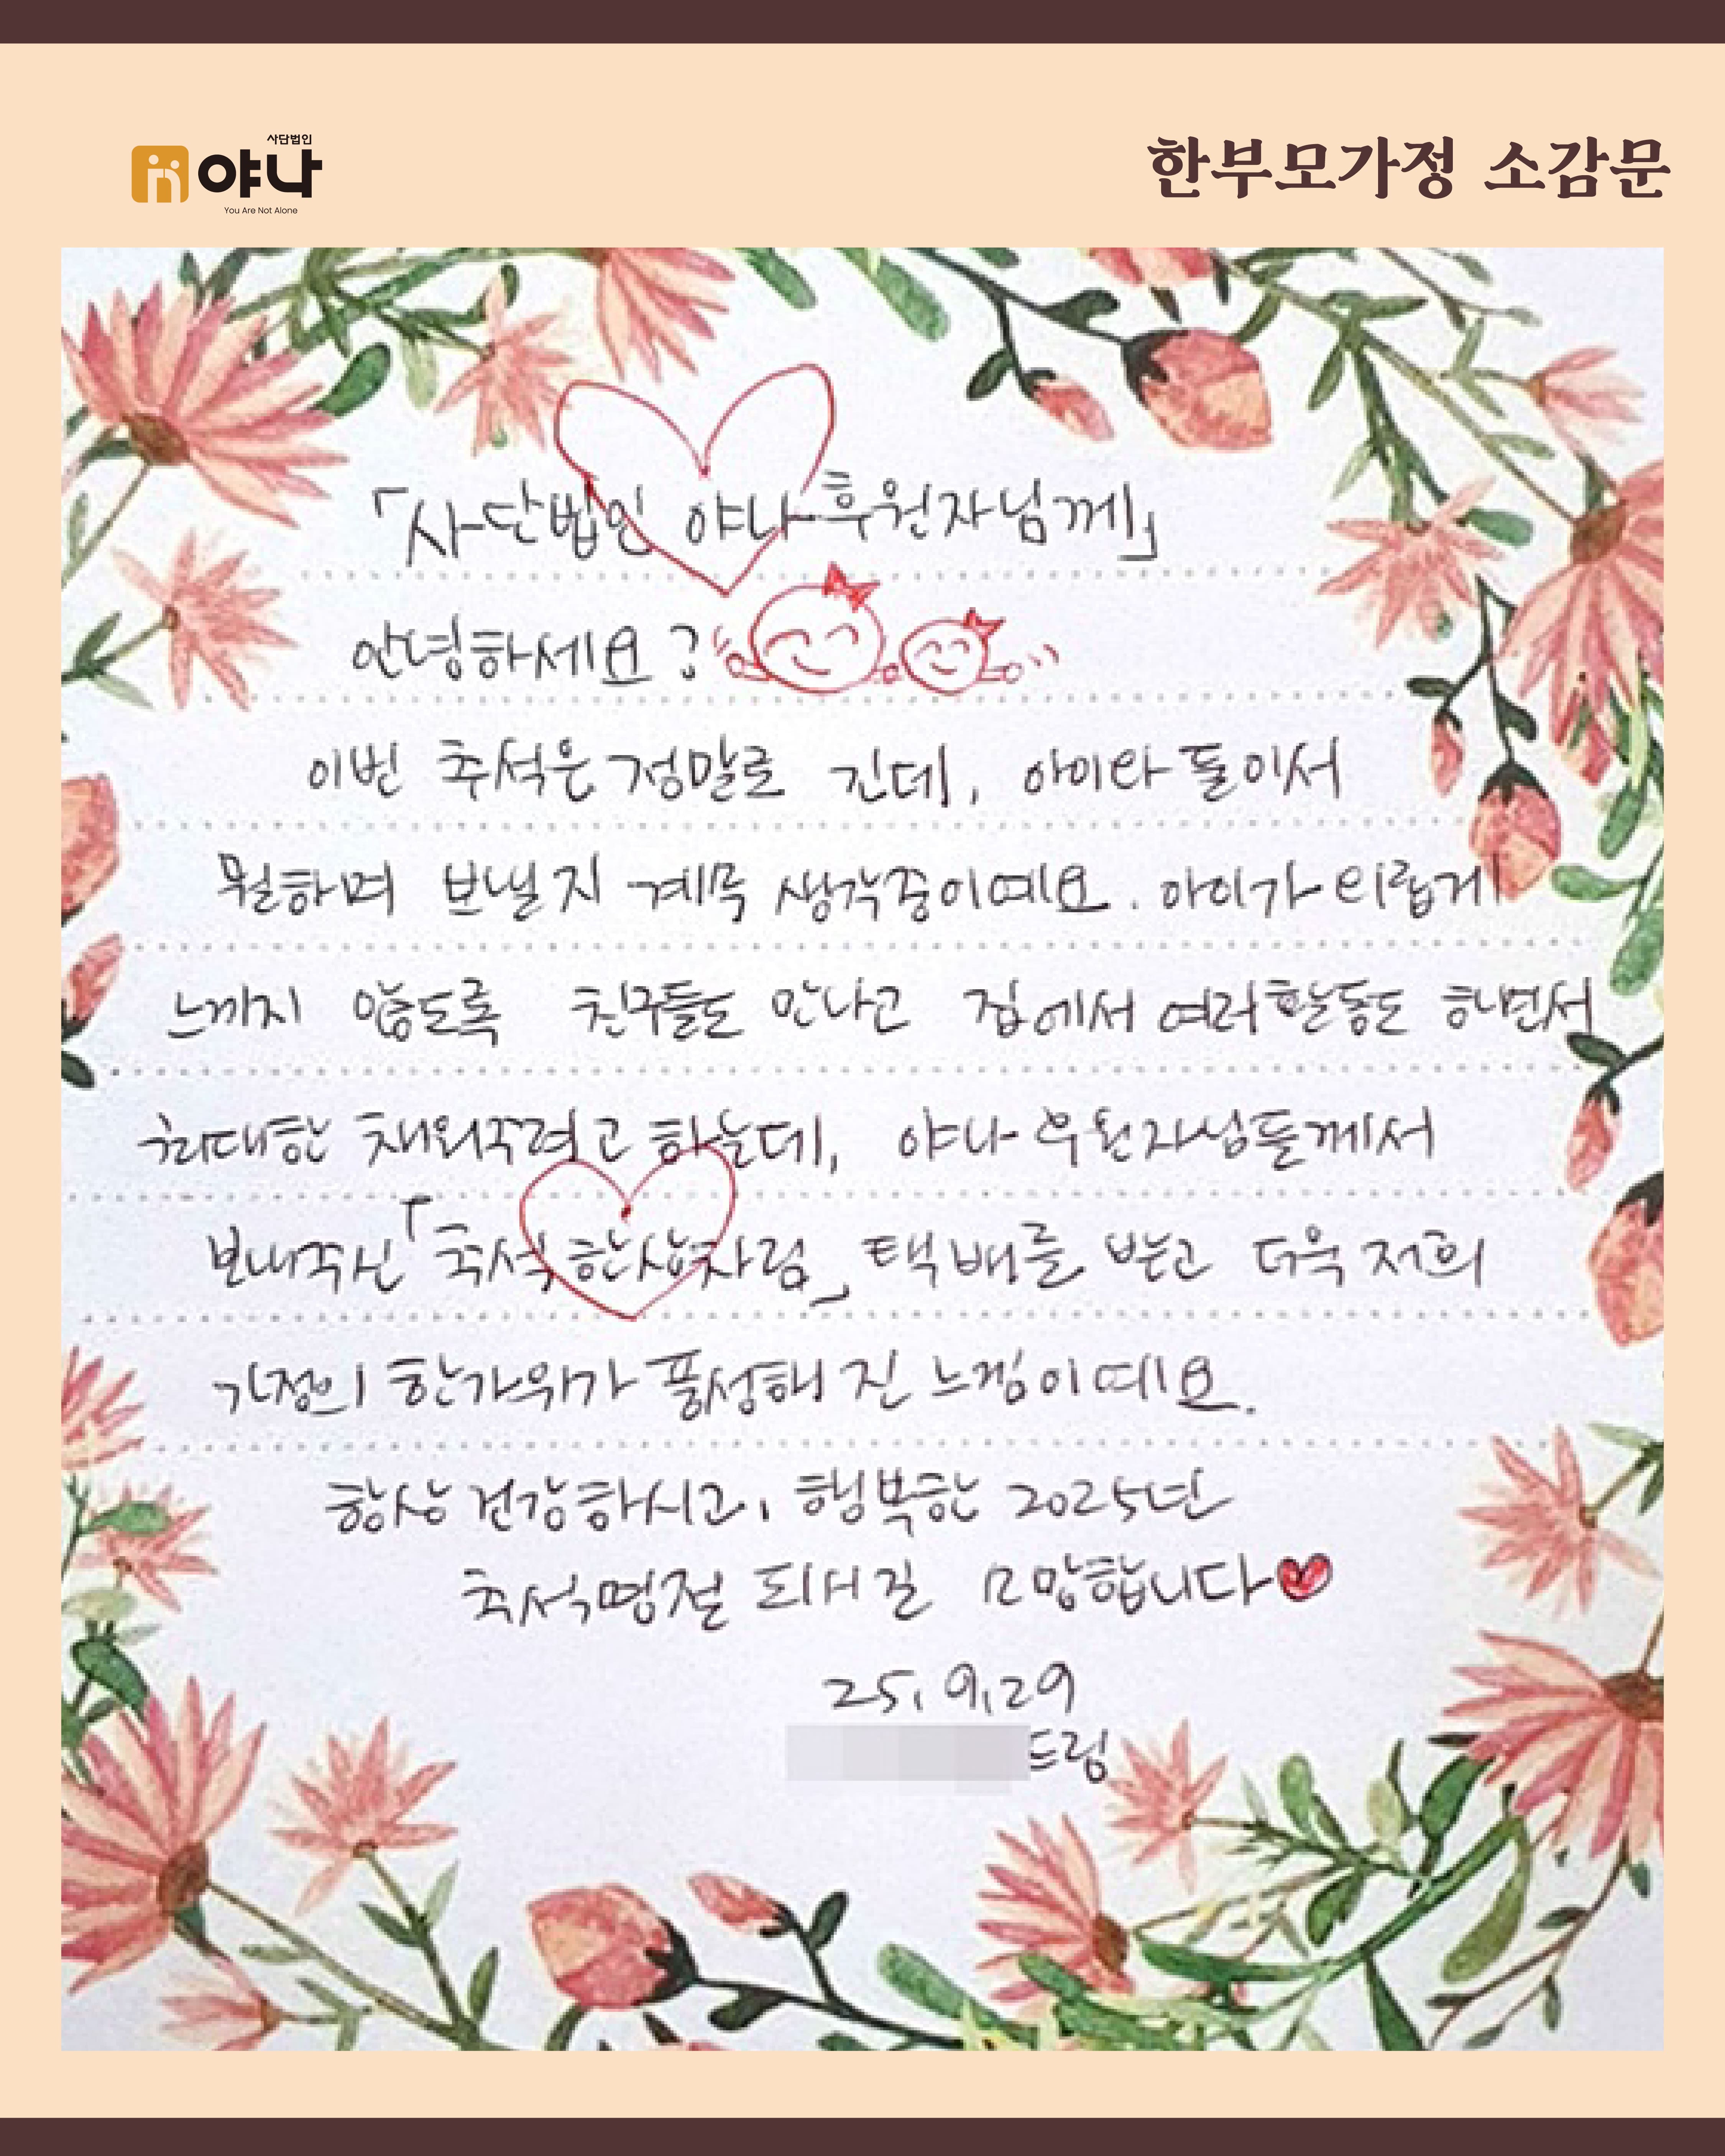 사단법인
야나
You Are Not Alone
한부모가정 소감문
「사단법인 야나 후원자님께」
안녕하세요?
이번 추석은 정말로 긴데, 아이와 둘이서
뭘하며 보낼지 계속 생각중이예요. 아이가 외롭게
느끼지 않도록 친구들도 만나고 집에서 여러활동도 하면서
최대한 채워주려고 하는데, 야나 후원자님들께서
보내주신 「추석 한상차림」 택배를 받고 더욱 저희
가정의 한가위가 풍성해 진 느낌이예요.
항상 건강하시고, 행복한 2025년
추석명절 되시길 소망합니다
25. 9. 29
드림